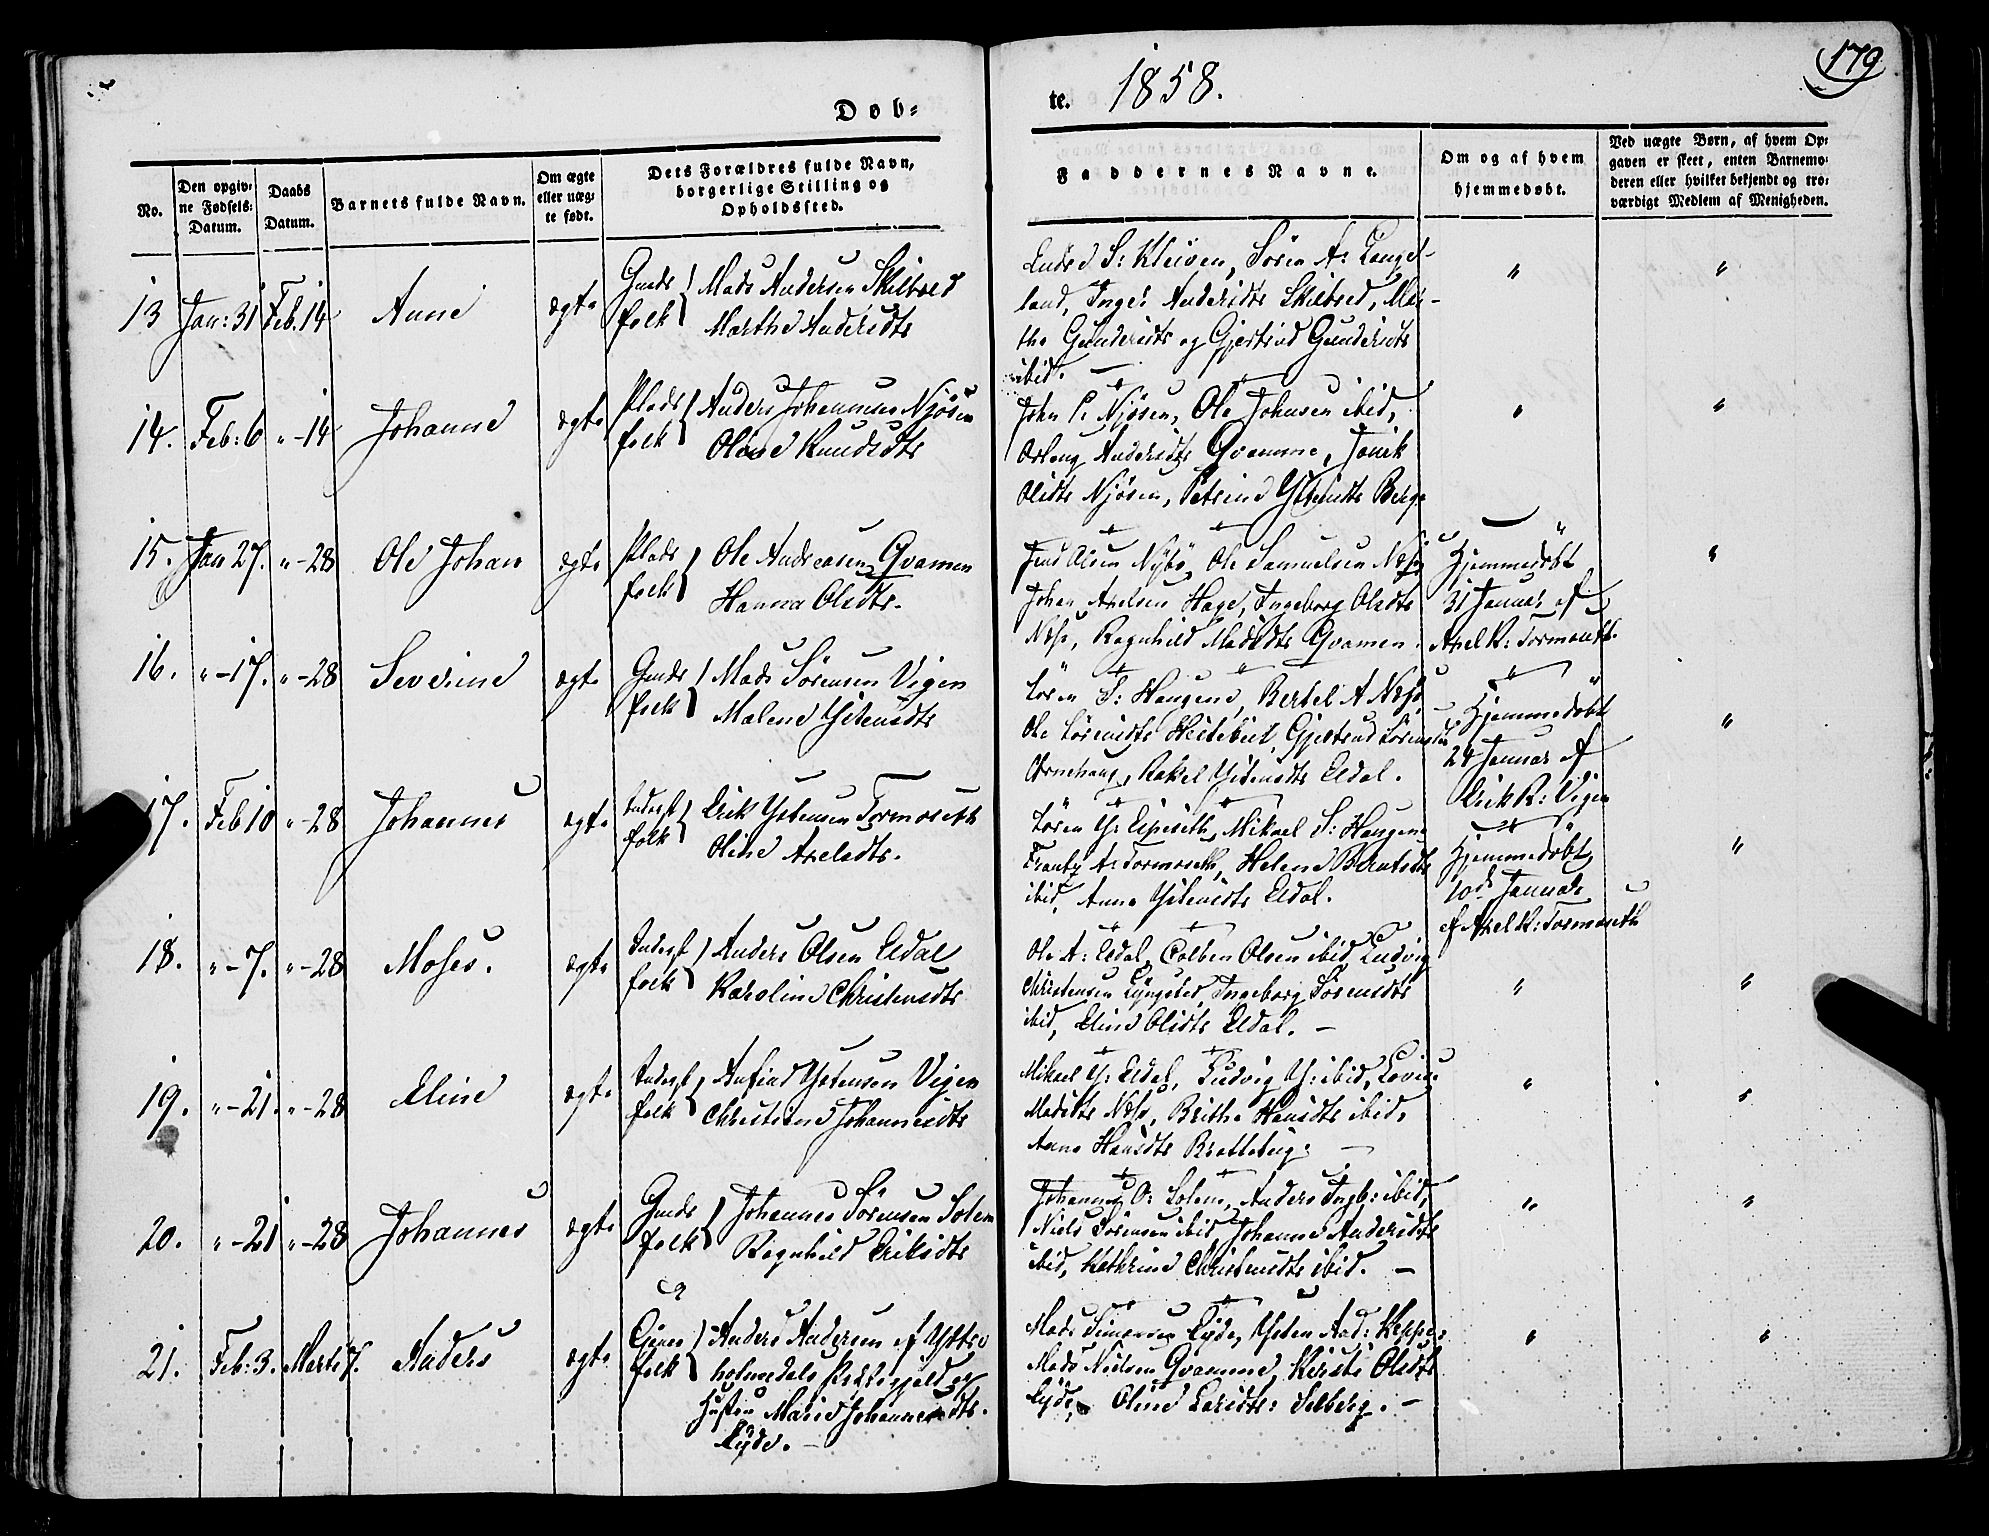 179
Døb-
te. 1858.
No.
Den opgiv-
ne Fødsels-
Datum.
Daabs
Datum.
Barnets fulde Navn.
Om ægte
eller uæg-
te født.
Dets Forældres fulde Navn,
borgerlige Stilling og
Opholdssted.
Faddernes Navne.
Om og af hvem
hjemmedøbt.
Ved uægte Børn, af hvem Op-
gaven er skeet, enten Barnemo-
deren eller hvilket bekjendt og tro-
værdigt Medlem af Menigheden.
13 Jan: 31 Feb. 14 Anne ægte
Gmds folk Mads Andersen Skilbred
Marthe Andersdtr
Endre S: Kleiven, Sören A: Langel-
land, Inger Andersdtr Skilbred, Mar-
the Gundersdtr og Gjertrud Gundersdtr
ibid. —
14. Feb: 6 " - 14 Johanne ægte
Plads folk Anders Johannesen Njösen
Oline Knudsdtr
John P. Njösen, Ole Johnsen ibid,
Andersdtr Qvamme,
Olsdtr Njösen, Petrine Ystensdtr Berge
15. Jan 27. " - 28 Ole Johan ægte
Plads folk Ole Andreasen Qvamen
Hanna Olsdtr.
Olsen Nybö, Ole Samuelsen Næse,
Johan Axelsen Hage, Ingeborg Olsdtr
Næse, Ragnhild Madsdtr Qvamen.
Hjemmedöbt
31 Januar af
Axel R: Tormoseth.
16. " - 17. " - 28 Severine ægte
Gmds folk Mads Sörensen Vigen
Malene Ystensdtr
Sören S: Haugene, Bertel A Næse,
Ole Sörensdtr Gjertrud Sörensdtr
Ornehaug, Rakel Ystensdtr Eldal.
Hjemmedöbt
24 Januar af
Erik R: Vigen
17. Feb 10 " - 28 Johannes ægte
Inderst folk Erik Ystensen Tormoseth
Oline Axelsdtr.
Sören Y: Espeseth, Mikael S: Haugene
Frantz A: Tormoseth, Helene Berntsdtr
ibid, Anne Ystensdtr Eldal.
Hjemmedöbt
10de Januar
af Axel R: Tormoseth
18. " - 7. " - 28 Moses. ægte
Inderst folk Anders Olsen Eldal
Karoline Christensdtr
Ole A: Eldal, Colben Olsen ibid, Ludvig
Christensen Lyngsted, Ingeborg Sörensdtr
ibid, Eline Olsdtr Eldal. —
19. " - 21. " - 28 Eline ægte
Inderst folk Anfind Ystensen Vigen
Christiane Johannesdtr
Mikael Y: Eldal, Ludvig Y: ibid, Lovise
Madsdtr Næse, Brithe Hansdtr ibid,
Anne Hansdtr Brattebug: —
20. " - 21 " - 28 Johannes ægte
Gmds folk Johannes Sörensen Solem
Ragnhild Eriksdtr
Johannes O: Solem, Anders Ingb: ibid,
Niels Sörensen ibid, Johanne Andersdtr
ibid, Kathrine Christensdtr ibid. —
21. Feb: 3. Marts 7. Anders ægte
folk Anders Andersen af Yttre
holmedals Præstegjeld og
Hustru Marie Johannesdtr.
Eyde. —
Mads Simonsen Eyde, Ysten And: Keppe,
Mads Nielsen Qvamme, Kirsti Olsdtr
Eyde, Oline Larsdtr: Selberg. —